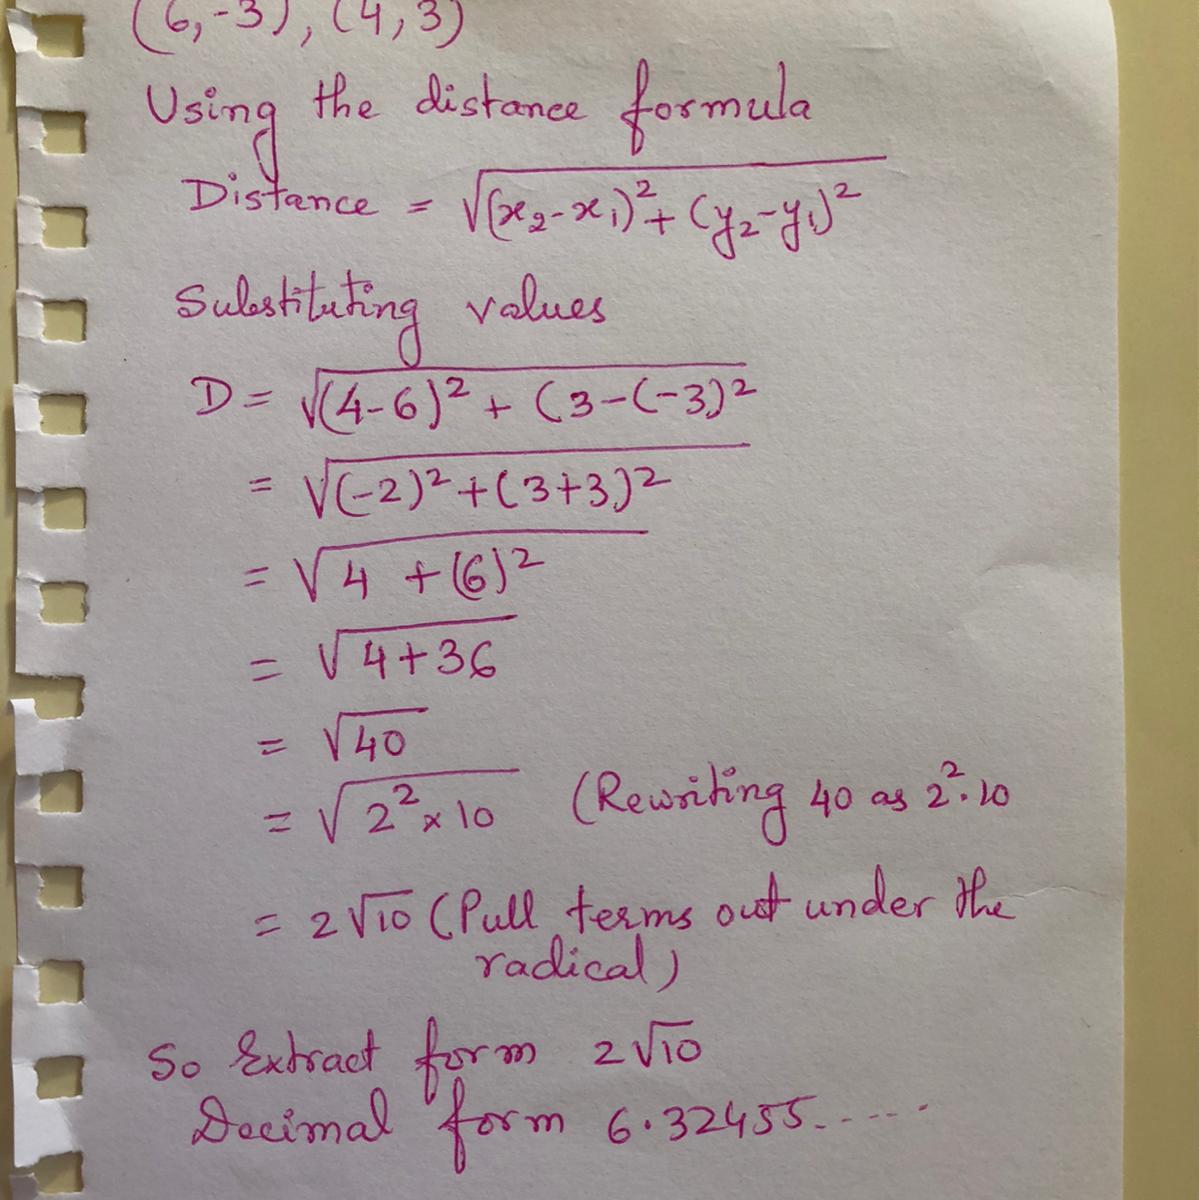 (6,-3), (4,3)
Using the distance formula
Distance = √(x₂-x₁)²+ (y₂-y₁)²
Substituting values
D = √(4-6)² + (3-(-3)²
= √(-2)²+(3+3)²
= √4 +(6)²
= √4+36
= √40
= √2²×10 (Rewriting 40 as 2²·10
= 2√10 (Pull terms out under the
radical)
So Extract form 2√10
Decimal form 6.32455.....